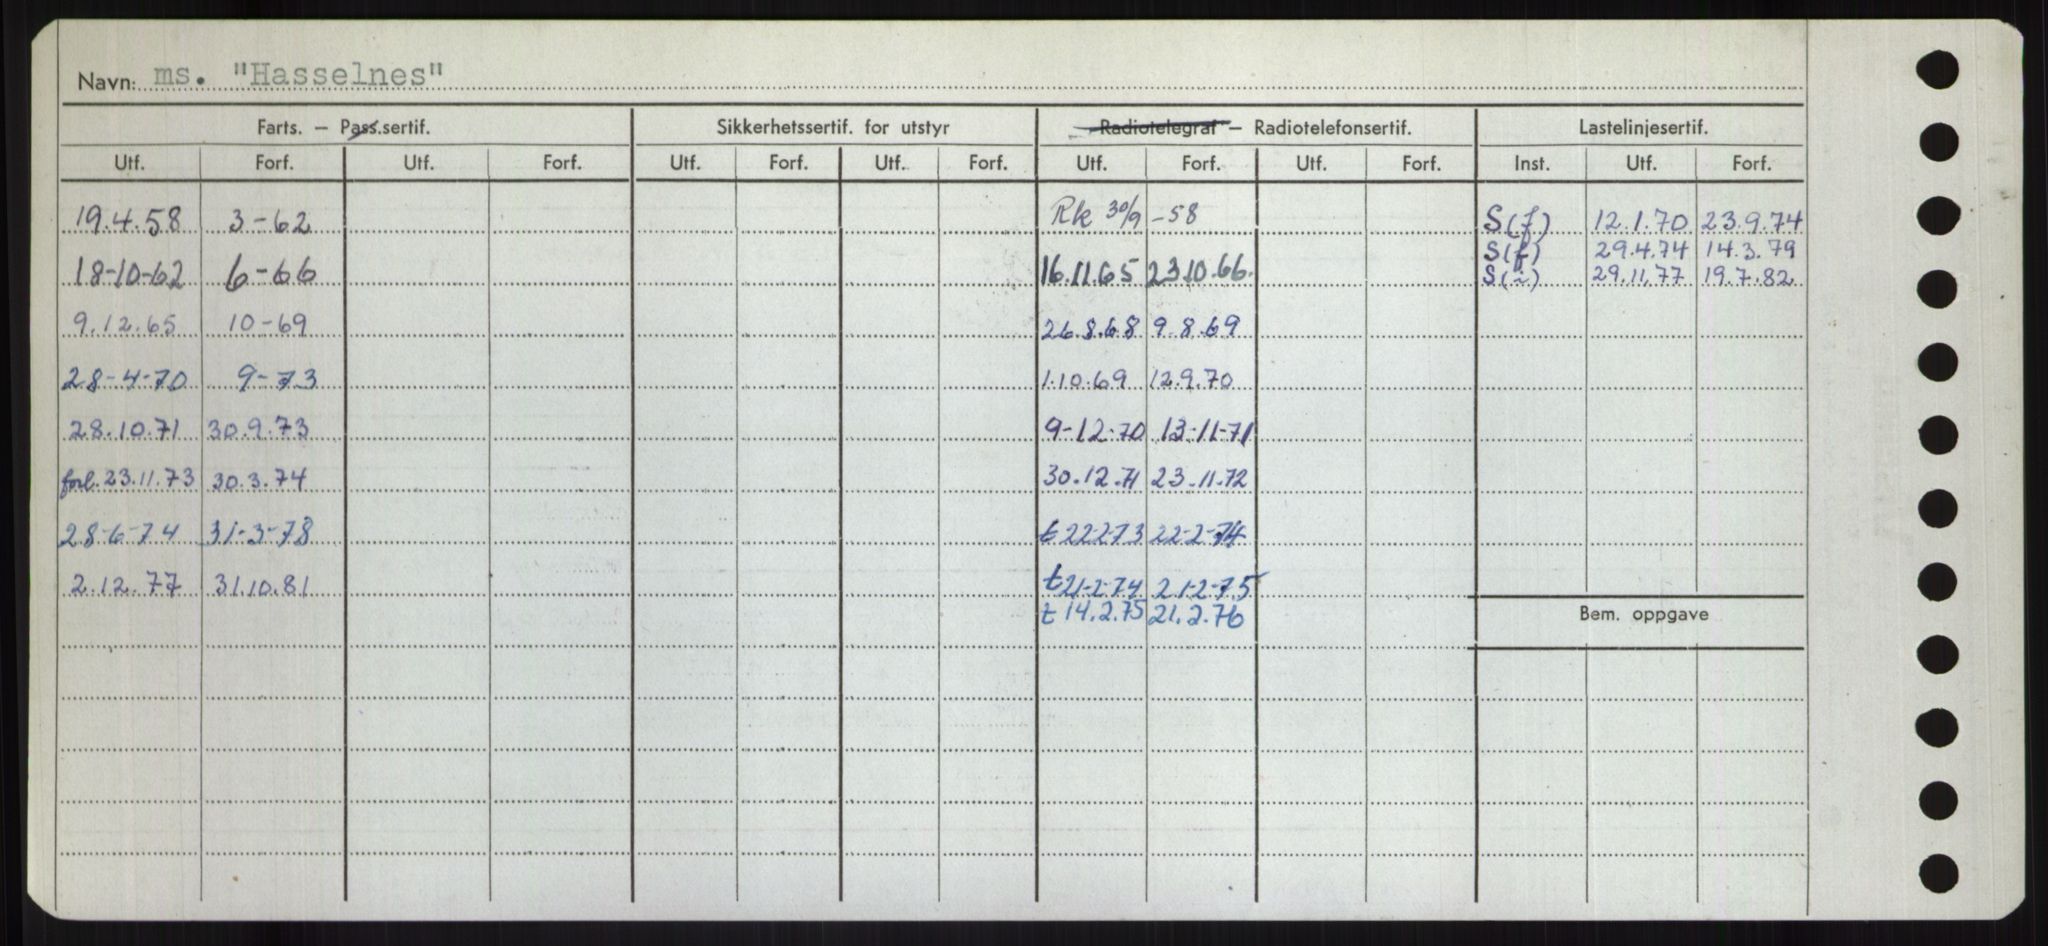 Navn: ms. "Hasselnes"
Farts. – Pass.sertif. Sikkerhetssertif. for utstyr Radiotelegraf – Radiotelefonsertif. Lastelinjesertif.
Utf. Forf. Utf. Forf. Utf. Forf. Utf. Forf. Utf. Forf. Utf. Forf. Inst. Utf. Forf.
19.4.58 3-62 Rk 30/9 -58 S(f) 12.1.70 23.9.74
S(f) 29.4.74 14.3.79
18-10-62 6-66 16.11.65 23.10.66. S(i) 29.11.77 19.7.82
9.12.65 10-69 26.8.68 9.8.69
28-4-70 9-73 1.10.69 12.9.70
28.10.71 30.9.73 9-12-70 13-11-71
forl. 23.11.73 30.3.74 30.12.71 23.11.72
28-6-74 31-3-78 t 22-2-73 22-2-74
2.12.77 31.10.81 t 21-2-74 21-2-75
t 14.2.75 21.2.76
Bem. oppgave